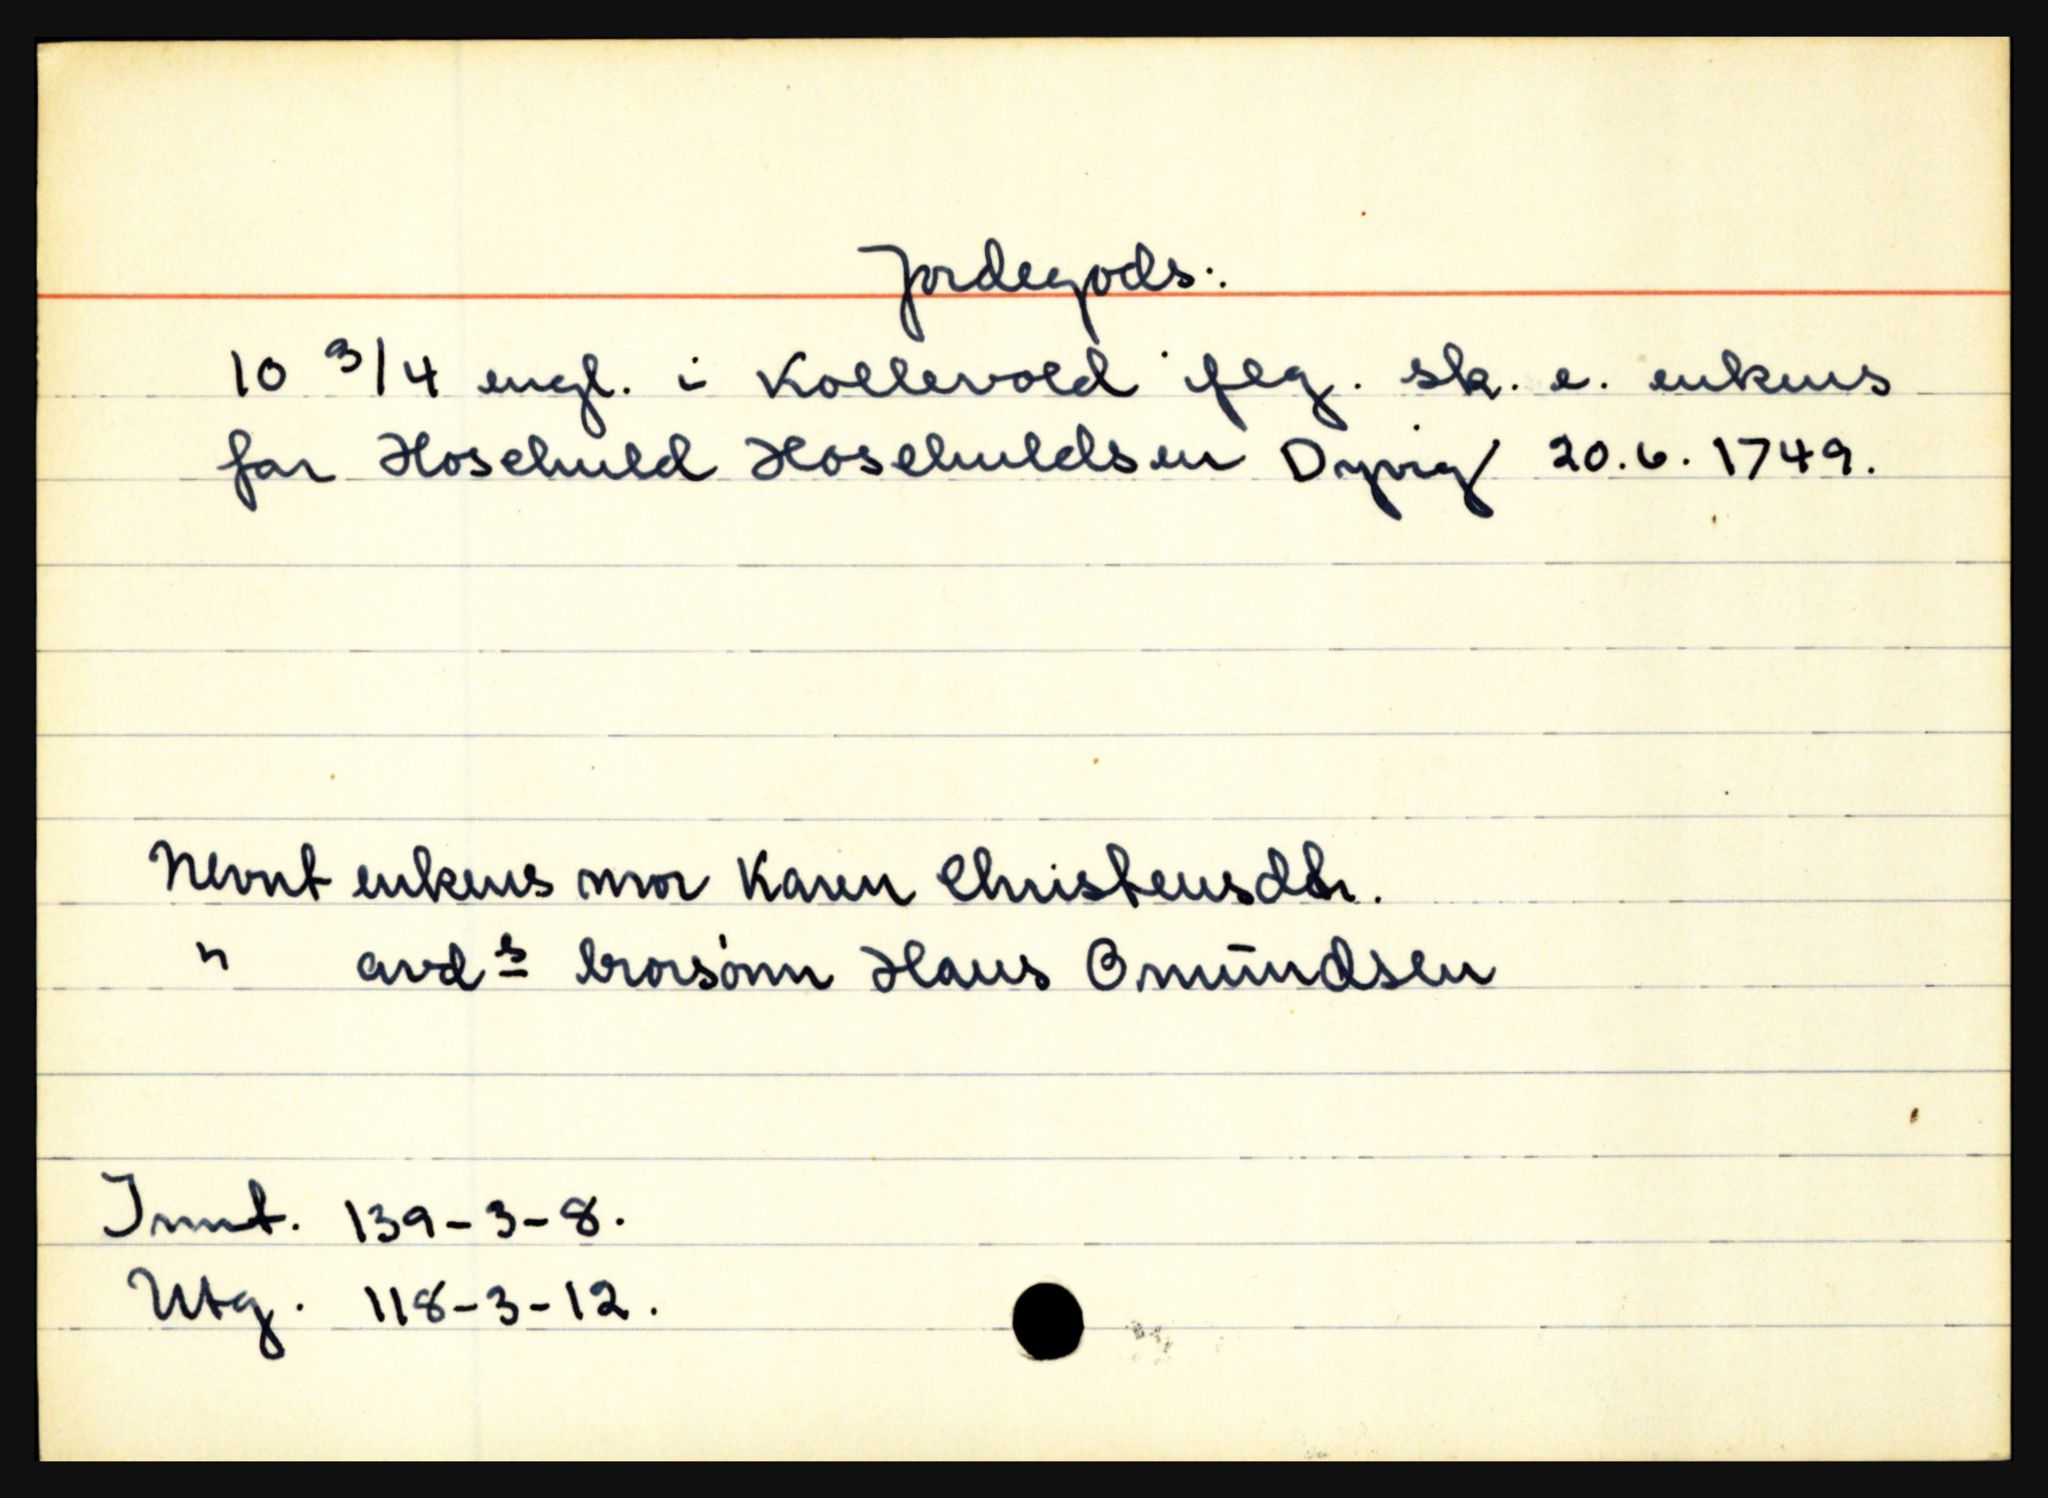 Jordegods:
10 3/4 engl. i Kollevold iflg. sk. e. enkens
far Hoschuld Hoschuldsen Dyvig 20.6.1749.
Nevnt enkens mor Karen Christensdtr.
" avds brorsønn Hans Omundsen
Innt. 139-3-8.
Utg. 118-3-12.